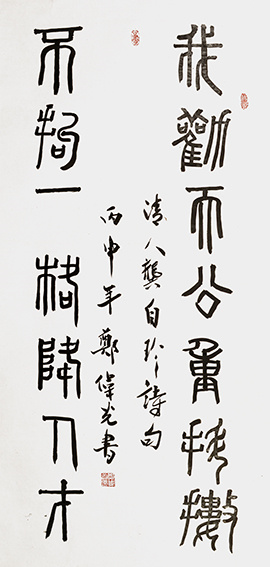 我勸天公重抖擻
清人龔自珍詩句
丙申年鄭偉光書
不拘一格降人才